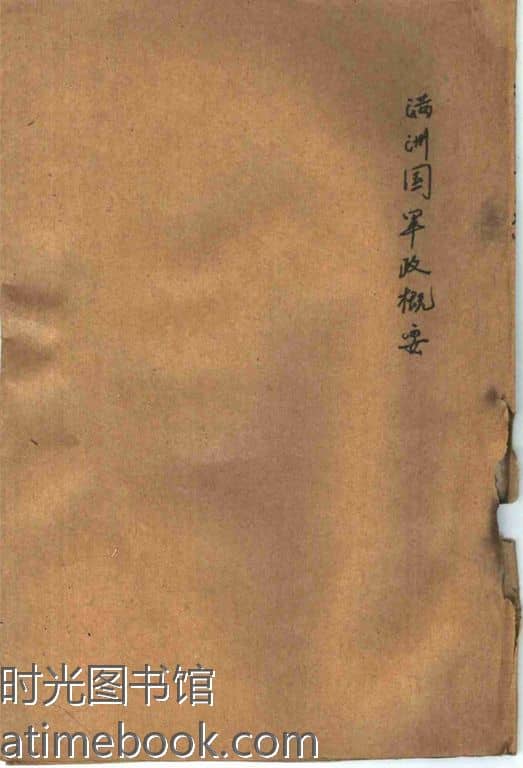 满洲国军政概要
时光图书馆
atimebook.com